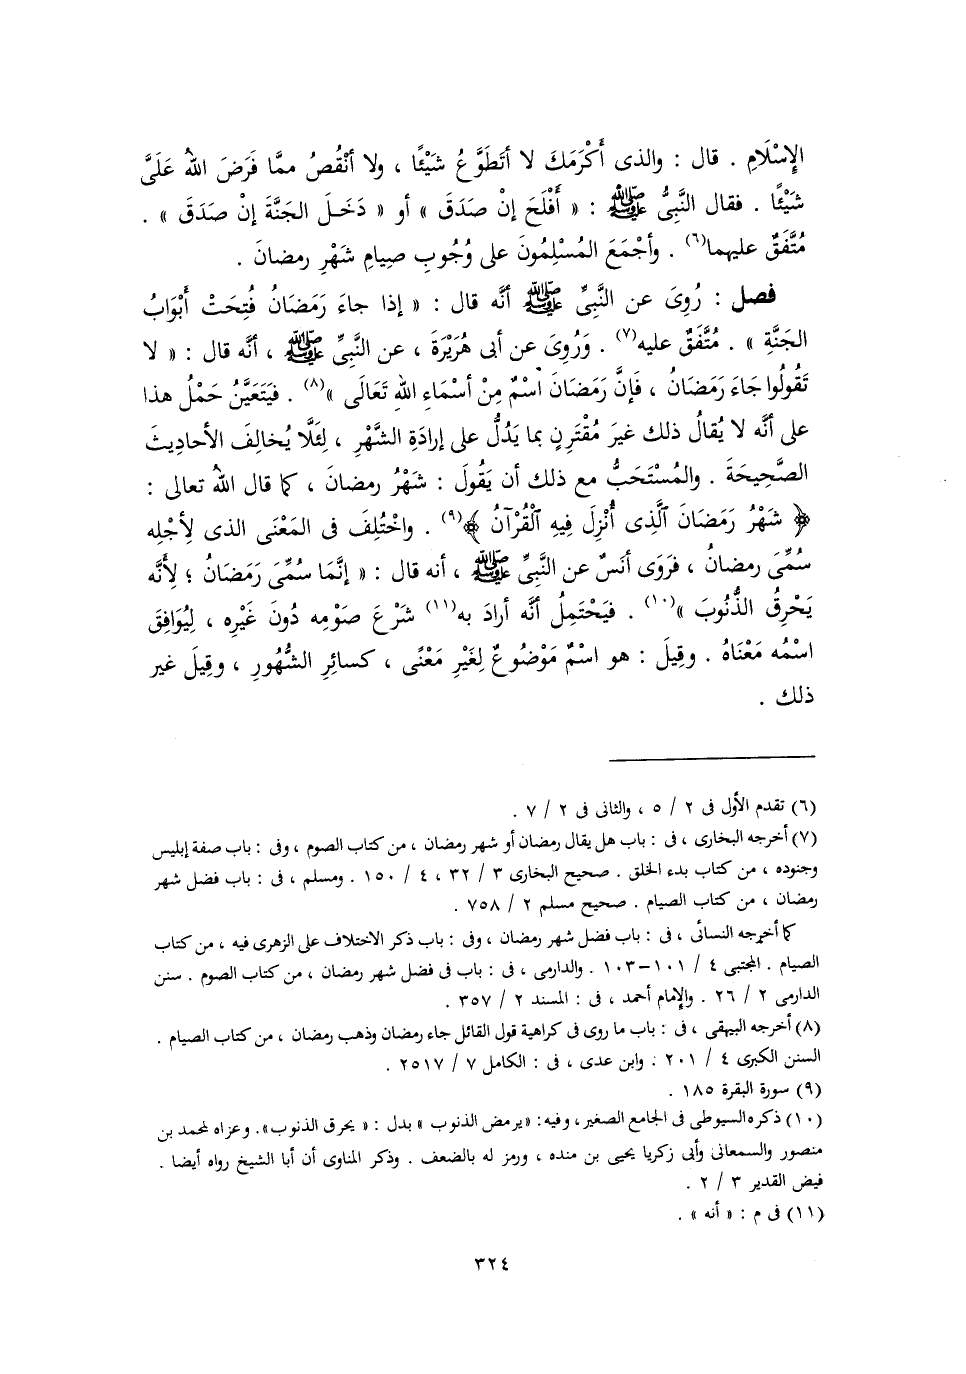 الإِسْلَامِ . قال : والذى أَكْرَمَكَ لا أتَطَوَّعُ شَيْئًا ، ولا أنْقُصُ ممَّا فَرَضَ اللهُ عَلَىَّ
شَيْئًا . فقال النَّبِىُّ ﷺ : « أَفْلَحَ إنْ صَدَقَ » أو « دَخَلَ الجَنَّةَ إنْ صَدَقَ » .
مُتَّفَقٌ عليهما(٦) . وأجْمَعَ المُسْلِمُونَ على وُجُوبِ صِيامِ شَهْرِ رمضانَ .
فصل : رُوِىَ عن النَّبِىِّ ﷺ أنَّه قال : « إذا جاءَ رَمَضَانُ فُتِحَتْ أَبْوَابُ
الجَنَّةِ » . مُتَّفَقٌ عليه(٧) . وَرُوِىَ عن أبى هُرَيْرَةَ ، عن النَّبِىِّ ﷺ ، أنَّه قال : « لا
تَقُولُوا جَاءَ رَمَضَانُ ، فَإنَّ رَمَضَانَ اسْمٌ مِنْ أسْمَاءِ اللهِ تَعَالَى »(٨) . فيَتَعَيَّنُ حَمْلُ هذا
على أنَّه لا يُقالُ ذلك غيرَ مُقْتَرِنٍ بما يَدُلُّ على إرادَةِ الشَّهْرِ ، لِئَلَّا يُخالِفَ الأحاديثَ
الصَّحِيحَةَ . والمُسْتَحَبُّ مع ذلك أن يَقُولَ : شَهْرُ رمضانَ ، كما قال اللهُ تعالى :
﴿ شَهْرُ رَمَضَانَ ٱلَّذِى أُنْزِلَ فِيهِ ٱلْقُرْآنُ ﴾(٩) . واخْتُلِفَ فى المَعْنَى الذى لِأجْلِه
سُمِّىَ رمضانُ ، فرَوَى أنَسٌ عن النَّبِىِّ ﷺ ، أنه قال : « إنَّمَا سُمِّىَ رَمَضَانُ ؛ لِأنَّه
يَحْرِقُ الذُّنُوبَ »(١٠) . فيَحْتَمِلُ أنَّه أرادَ به(١١) شَرْعَ صَوْمِه دُونَ غَيْرِه ، لِيُوَافِقَ
اسْمُه مَعْنَاهُ . وقِيلَ : هو اسْمٌ مَوْضُوعٌ لِغَيْرِ مَعْنًى ، كسائِرِ الشُّهُورِ ، وقِيلَ غير
ذلك .
(٦) تقدم الأول فى ٢ / ٥ ، والثانى فى ٢ / ٧ .
(٧) أخرجه البخارى ، فى : باب هل يقال رمضان أو شهر رمضان ، من كتاب الصوم ، وفى : باب صفة إبليس
وجنوده ، من كتاب بدء الخلق . صحيح البخارى ٣ / ٣٢ ، ٤ / ١٥٠ . ومسلم ، فى : باب فضل شهر
رمضان ، من كتاب الصيام . صحيح مسلم ٢ / ٧٥٨ .
كما أخرجه النسائى ، فى : باب فضل شهر رمضان ، وفى : باب ذكر الاختلاف على الزهرى فيه ، من كتاب
الصيام . المجتبى ٤ / ١٠١-١٠٣ . والدارمى ، فى : باب فى فضل شهر رمضان ، من كتاب الصوم . سنن
الدارمى ٢ / ٢٦ . والإمام أحمد ، فى : المسند ٢ / ٣٥٧ .
(٨) أخرجه البيهقى ، فى : باب ما روى فى كراهية قول القائل جاء رمضان وذهب رمضان ، من كتاب الصيام .
السنن الكبرى ٤ / ٢٠١ . وابن عدى ، فى : الكامل ٧ / ٢٥١٧ .
(٩) سورة البقرة ١٨٥ .
(١٠) ذكره السيوطى فى الجامع الصغير ، وفيه : «يرمض الذنوب » بدل : « يحرق الذنوب». وعزاه لمحمد بن
منصور والسمعانى وأبى زكريا يحيى بن منده ، ورمز له بالضعف . وذكر المناوى أن أبا الشيخ رواه أيضا .
فيض القدير ٣ / ٢ .
(١١) فى م : « أنه » .
٣٢٤